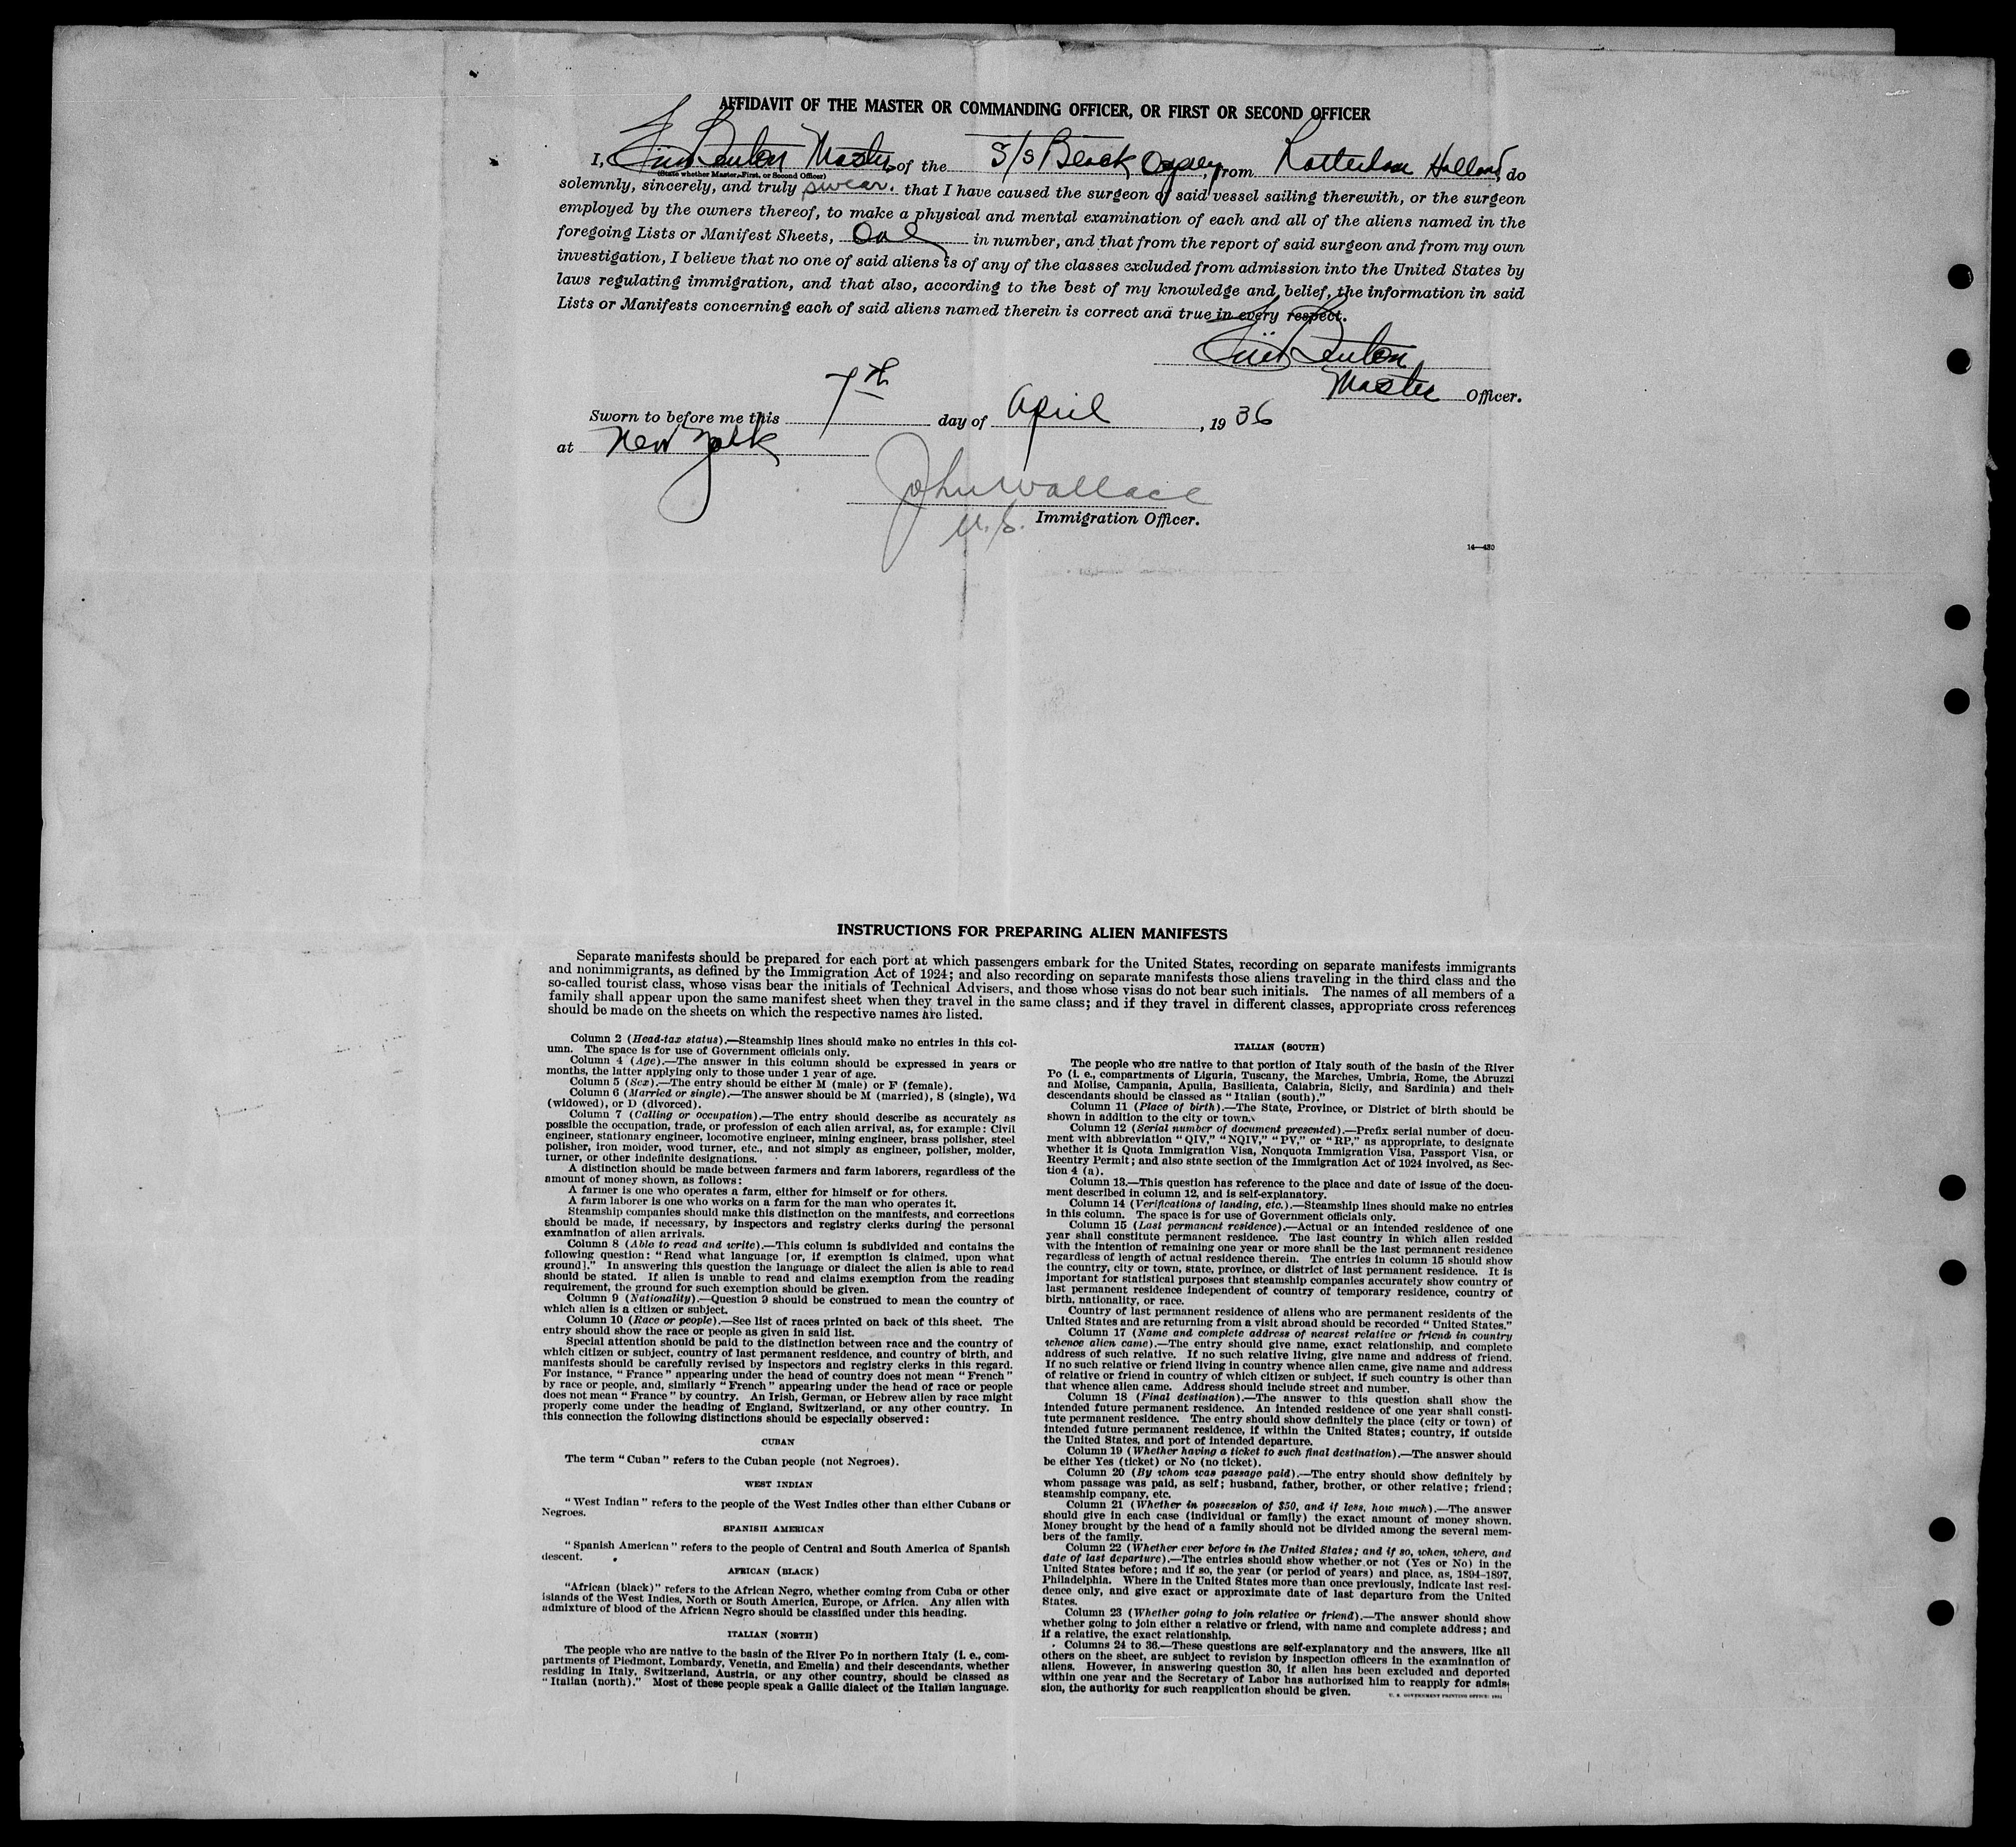 AFFIDAVIT OF THE MASTER OR COMMANDING OFFICER, OR FIRST OR SECOND OFFICER
I, Master of the S/S Black Osprey, from Rotterdam Holland, do
(State whether Master, First, or Second Officer)
solemnly, sincerely, and truly swear. that I have caused the surgeon of said vessel sailing therewith, or the surgeon
employed by the owners thereof, to make a physical and mental examination of each and all of the aliens named in the
foregoing Lists or Manifest Sheets, One in number, and that from the report of said surgeon and from my own
investigation, I believe that no one of said aliens is of any of the classes excluded from admission into the United States by
laws regulating immigration, and that also, according to the best of my knowledge and belief, the information in said
Lists or Manifests concerning each of said aliens named therein is correct and true in every respect.
Master Officer.
Sworn to before me this 7th day of April, 1936
at New York
John Wallace
U.S. Immigration Officer.
14—430
INSTRUCTIONS FOR PREPARING ALIEN MANIFESTS
Separate manifests should be prepared for each port at which passengers embark for the United States, recording on separate manifests immigrants
and nonimmigrants, as defined by the Immigration Act of 1924; and also recording on separate manifests those aliens traveling in the third class and the
so-called tourist class, whose visas bear the initials of Technical Advisers, and those whose visas do not bear such initials. The names of all members of a
family shall appear upon the same manifest sheet when they travel in the same class; and if they travel in different classes, appropriate cross references
should be made on the sheets on which the respective names are listed.
Column 2 (Head-tax status).—Steamship lines should make no entries in this col-
umn. The space is for use of Government officials only.
Column 4 (Age).—The answer in this column should be expressed in years or
months, the latter applying only to those under 1 year of age.
Column 5 (Sex).—The entry should be either M (male) or F (female).
Column 6 (Married or single).—The answer should be M (married), S (single), Wd
(widowed), or D (divorced).
Column 7 (Calling or occupation).—The entry should describe as accurately as
possible the occupation, trade, or profession of each alien arrival, as, for example: Civil
engineer, stationary engineer, locomotive engineer, mining engineer, brass polisher, steel
polisher, iron molder, wood turner, etc., and not simply as engineer, polisher, molder,
turner, or other indefinite designations.
A distinction should be made between farmers and farm laborers, regardless of the
amount of money shown, as follows:
A farmer is one who operates a farm, either for himself or for others.
A farm laborer is one who works on a farm for the man who operates it.
Steamship companies should make this distinction on the manifests, and corrections
should be made, if necessary, by inspectors and registry clerks during the personal
examination of alien arrivals.
Column 8 (Able to read and write).—This column is subdivided and contains the
following question: "Read what language [or, if exemption is claimed, upon what
ground]." In answering this question the language or dialect the alien is able to read
should be stated. If alien is unable to read and claims exemption from the reading
requirement, the ground for such exemption should be given.
Column 9 (Nationality).—Question 9 should be construed to mean the country of
which alien is a citizen or subject.
Column 10 (Race or people).—See list of races printed on back of this sheet. The
entry should show the race or people as given in said list.
Special attention should be paid to the distinction between race and the country of
which citizen or subject, country of last permanent residence, and country of birth, and
manifests should be carefully revised by inspectors and registry clerks in this regard.
For instance, "France" appearing under the head of country does not mean "French"
by race or people, and, similarly "French" appearing under the head of race or people
does not mean "France" by country. An Irish, German, or Hebrew alien by race might
properly come under the heading of England, Switzerland, or any other country. In
this connection the following distinctions should be especially observed:
CUBAN
The term "Cuban" refers to the Cuban people (not Negroes).
WEST INDIAN
"West Indian" refers to the people of the West Indies other than either Cubans or
Negroes.
SPANISH AMERICAN
"Spanish American" refers to the people of Central and South America of Spanish
descent.
AFRICAN (BLACK)
"African (black)" refers to the African Negro, whether coming from Cuba or other
islands of the West Indies, North or South America, Europe, or Africa. Any alien with
admixture of blood of the African Negro should be classified under this heading.
ITALIAN (NORTH)
The people who are native to the basin of the River Po in northern Italy (i. e., com-
partments of Piedmont, Lombardy, Venetia, and Emelia) and their descendants, whether
residing in Italy, Switzerland, Austria, or any other country, should be classed as
"Italian (north)." Most of these people speak a Gallic dialect of the Italian language.
ITALIAN (SOUTH)
The people who are native to that portion of Italy south of the basin of the River
Po (i. e., compartments of Liguria, Tuscany, the Marches, Umbria, Rome, the Abruzzi
and Molise, Campania, Apulia, Basilicata, Calabria, Sicily, and Sardinia) and their
descendants should be classed as "Italian (south)."
Column 11 (Place of birth).—The State, Province, or District of birth should be
shown in addition to the city or town.
Column 12 (Serial number of document presented).—Prefix serial number of docu-
ment with abbreviation "QIV," "NQIV," "PV," or "RP," as appropriate, to designate
whether it is Quota Immigration Visa, Nonquota Immigration Visa, Passport Visa, or
Reentry Permit; and also state section of the Immigration Act of 1924 involved, as Sec-
tion 4 (a).
Column 13.—This question has reference to the place and date of issue of the docu-
ment described in column 12, and is self-explanatory.
Column 14 (Verifications of landing, etc.).—Steamship lines should make no entries
in this column. The space is for use of Government officials only.
Column 15 (Last permanent residence).—Actual or an intended residence of one
year shall constitute permanent residence. The last country in which alien resided
with the intention of remaining one year or more shall be the last permanent residence
regardless of length of actual residence therein. The entries in column 15 should show
the country, city or town, state, province, or district of last permanent residence. It is
important for statistical purposes that steamship companies accurately show country of
last permanent residence independent of country of temporary residence, country of
birth, nationality, or race.
Country of last permanent residence of aliens who are permanent residents of the
United States and are returning from a visit abroad should be recorded "United States."
Column 17 (Name and complete address of nearest relative or friend in country
whence alien came).—The entry should give name, exact relationship, and complete
address of such relative. If no such relative living, give name and address of friend.
If no such relative or friend living in country whence alien came, give name and address
of relative or friend in country of which citizen or subject, if such country is other than
that whence alien came. Address should include street and number.
Column 18 (Final destination).—The answer to this question shall show the
intended future permanent residence. An intended residence of one year shall consti-
tute permanent residence. The entry should show definitely the place (city or town) of
intended future permanent residence, if within the United States; country, if outside
the United States, and port of intended departure.
Column 19 (Whether having a ticket to such final destination).—The answer should
be either Yes (ticket) or No (no ticket).
Column 20 (By whom was passage paid).—The entry should show definitely by
whom passage was paid, as self; husband, father, brother, or other relative; friend;
steamship company, etc.
Column 21 (Whether in possession of $50, and if less, how much).—The answer
should give in each case (individual or family) the exact amount of money shown.
Money brought by the head of a family should not be divided among the several mem-
bers of the family.
Column 22 (Whether ever before in the United States; and if so, when, where, and
date of last departure).—The entries should show whether or not (Yes or No) in the
United States before; and if so, the year (or period of years) and place, as, 1894–1897,
Philadelphia. Where in the United States more than once previously, indicate last resi-
dence only, and give exact or approximate date of last departure from the United
States.
Column 23 (Whether going to join relative or friend).—The answer should show
whether going to join either a relative or friend, with name and complete address; and
if a relative, the exact relationship.
Columns 24 to 36.—These questions are self-explanatory and the answers, like all
others on the sheet, are subject to revision by inspection officers in the examination of
aliens. However, in answering question 30, if alien has been excluded and deported
within one year and the Secretary of Labor has authorized him to reapply for admis-
sion, the authority for such reapplication should be given.